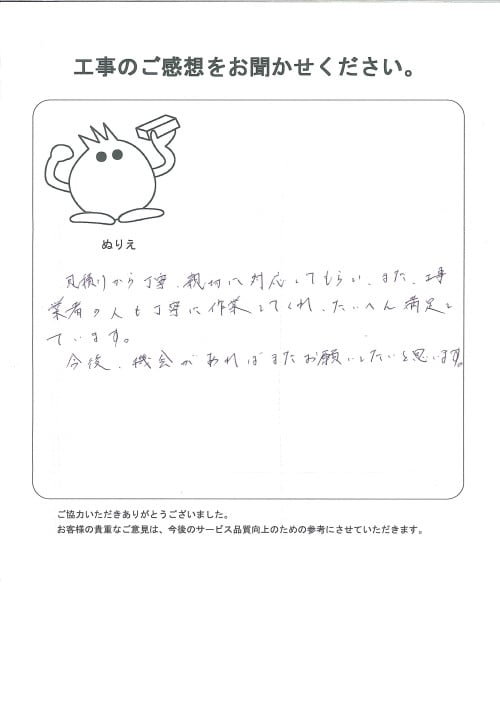 工事のご感想をお聞かせください。
ぬりえ
見積りから丁寧、親切に対応してもらい、また、工事
業者の人も丁寧に作業してくれ、たいへん満足し
ています。
今後、機会があればまたお願いしたいと思います。
ご協力いただきありがとうございました。
お客様の貴重なご意見は、今後のサービス品質向上のための参考にさせていただきます。